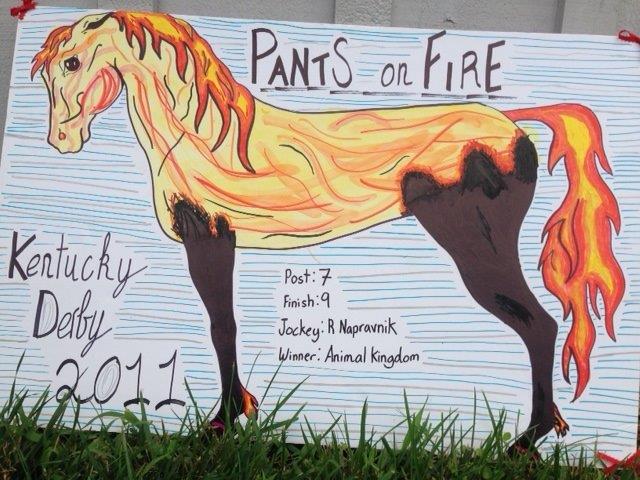 PANTS on FIRE
Kentucky
Derby
2011
Post: 7
Finish: 9
Jockey: R Napravnik
Winner: Animal Kingdom